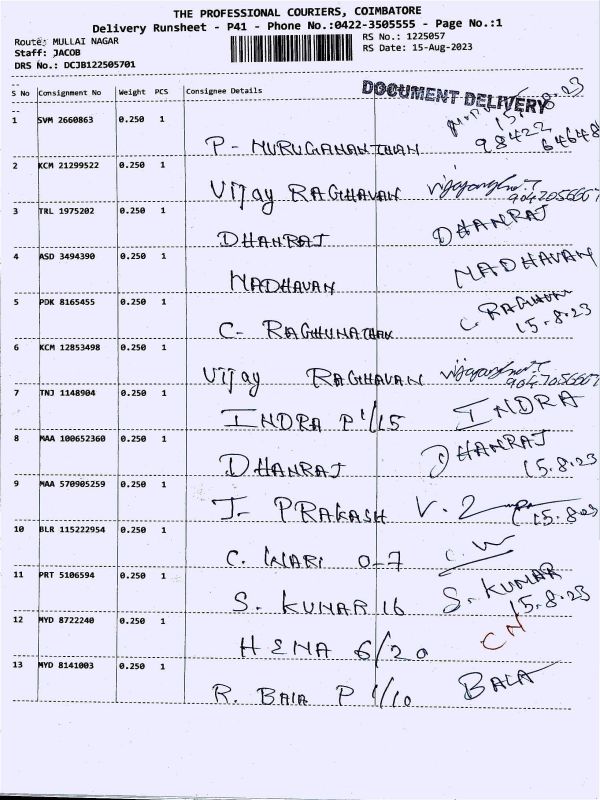 THE PROFESSIONAL COURIERS, COIMBATORE
Delivery Runsheet - P41 - Phone No.:0422-3505555 - Page No.:1
Route: MULLAI NAGAR
Staff: JACOB
DRS No.: DCJB122505701
RS No.: 1225057
RS Date: 15-Aug-2023
S No Consignment No Weight PCS Consignee Details
DOCUMENT DELIVERY
15.8.23
1 SVM 2660863 0.250 1
P - MURUGANANTHAN 98422 64648
2 KCM 21299522 0.250 1
Vijay RAGHAVAN 9047056607
3 TRL 1975202 0.250 1
DHANRAJ DHANRAJ
4 ASD 3494390 0.250 1
MADHAVAN MADHAVAN
5 PDK 8165455 0.250 1
C- RAGHUNATHAN C. RAGHUN
15.8.23
6 KCM 12853498 0.250 1
Vijay RAGHAVAN 9047056607
7 TNJ 1148904 0.250 1
INDRA P1/15 INDRA
8 MAA 100652360 0.250 1
DHANRAJ DHANRAJ
15.8.23
9 MAA 570905259 0.250 1
J- PRAKASH V.2 15.8.23
10 BLR 115222954 0.250 1
C. WARI 0-7 C.W
11 PRT 5106594 0.250 1
S. KUMAR 16 S. KUMAR
15.8.23
12 MYD 8722240 0.250 1
HEMA 6/20 CN
13 MYD 8141003 0.250 1
R. BALA P 1/10 BALA